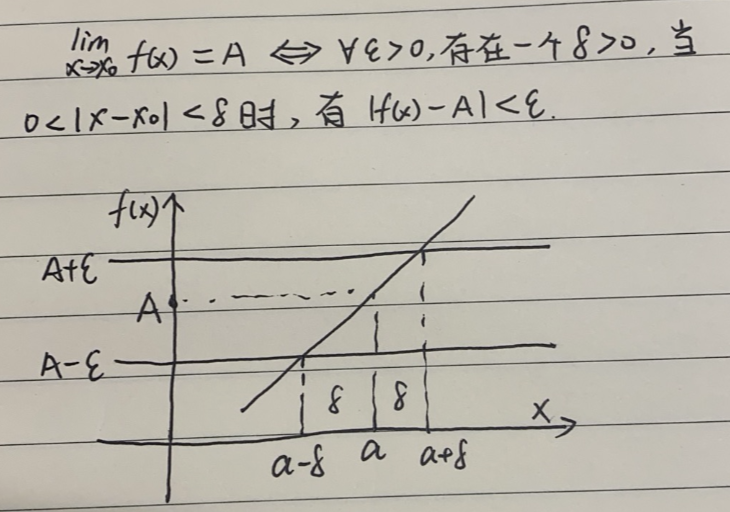 lim f(x) = A ⟺ ∀ε>0, 存在一个 δ>0, 当
x→x₀
0<|x-x₀|<δ时, 有 |f(x)-A|<ε.
f(x)
A+ε
A
A-ε
δ δ
x
a-δ a a+δ